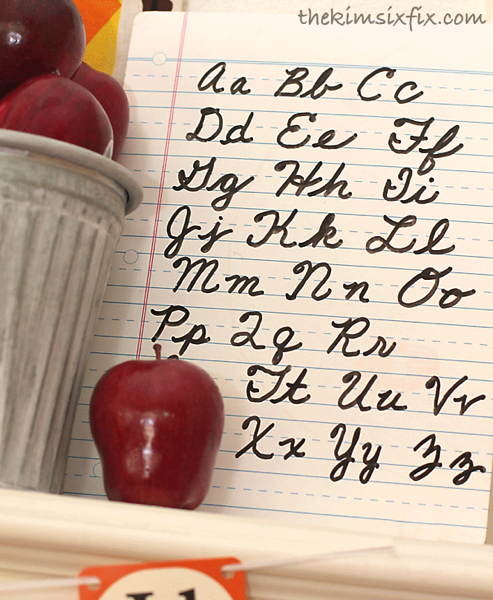 thekimsixfix.com
Aa Bb Cc
Dd Ee Ff
Gg Hh Ii
Jj Kk Ll
Mm Nn Oo
Pp Qq Rr
Tt Uu Vv
Xx Yy Zz